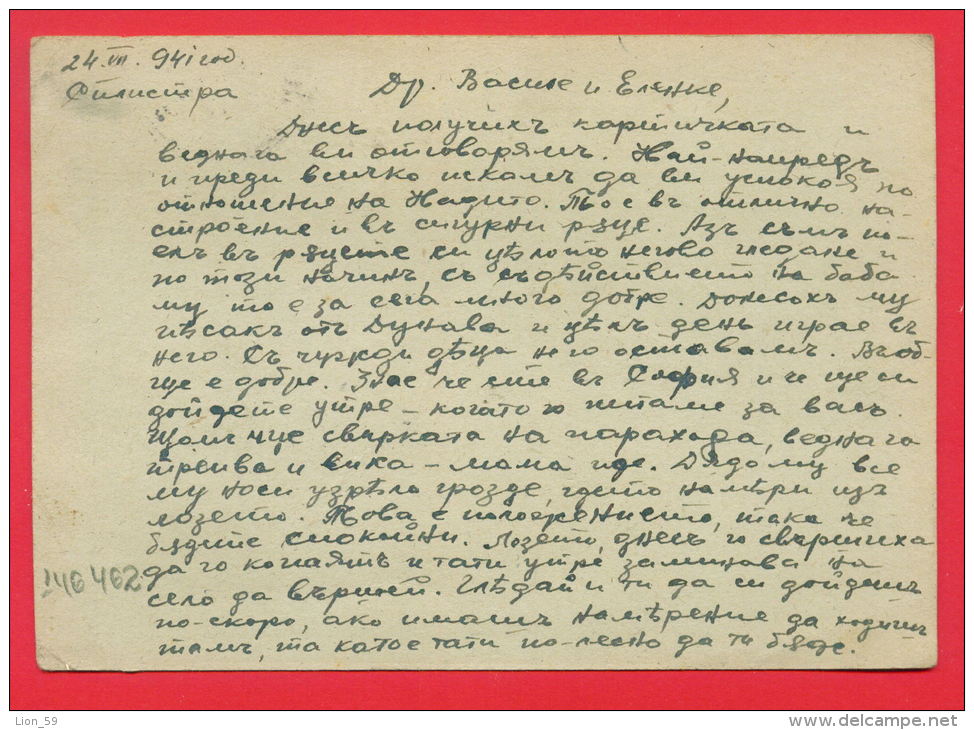 24. VII. 941 год.
Силистра
Др. Василе и Еленке,
Днесъ получихъ картичката и
веднага ви отговарямъ. Най-напредъ
и преди всичко искамъ да ви успокоя по
отношение на Надито. То е въ отлично на-
строение и въ сигурни рѫце. Азъ съмъ по-
елъ въ рѫцете си цѣлото негово гледане и
по този начинъ, съ съдѣйствието на баба
му то е за сега много добре. Донесохъ му
пѣсакъ отъ Дунава и цѣлъ день играе въ
него. Съ чужди дѣца не го оставамъ. Въоб-
ще е добре. Знае че сте въ София и че ще си
дойдете утре – когато го питаме за васъ.
Щомъ чуе свирката на парахода, веднага
трепва и вика – мама иде. Дядо му все
му носи узрѣло грозде, гдето намѣри изъ
лозето. Това е положението, така че
бѫдете спокойни. Лозето, днесъ го свършиха
да го копаятъ и тати утре заминава на
село да вършей. Гледай и ти да си дойдешъ
по-скоро, ако имашъ намѣрение да ходишъ
тамъ, та като е тати по-лесно да ти бѫде.
146462
Lion_59
www.delcampe.net